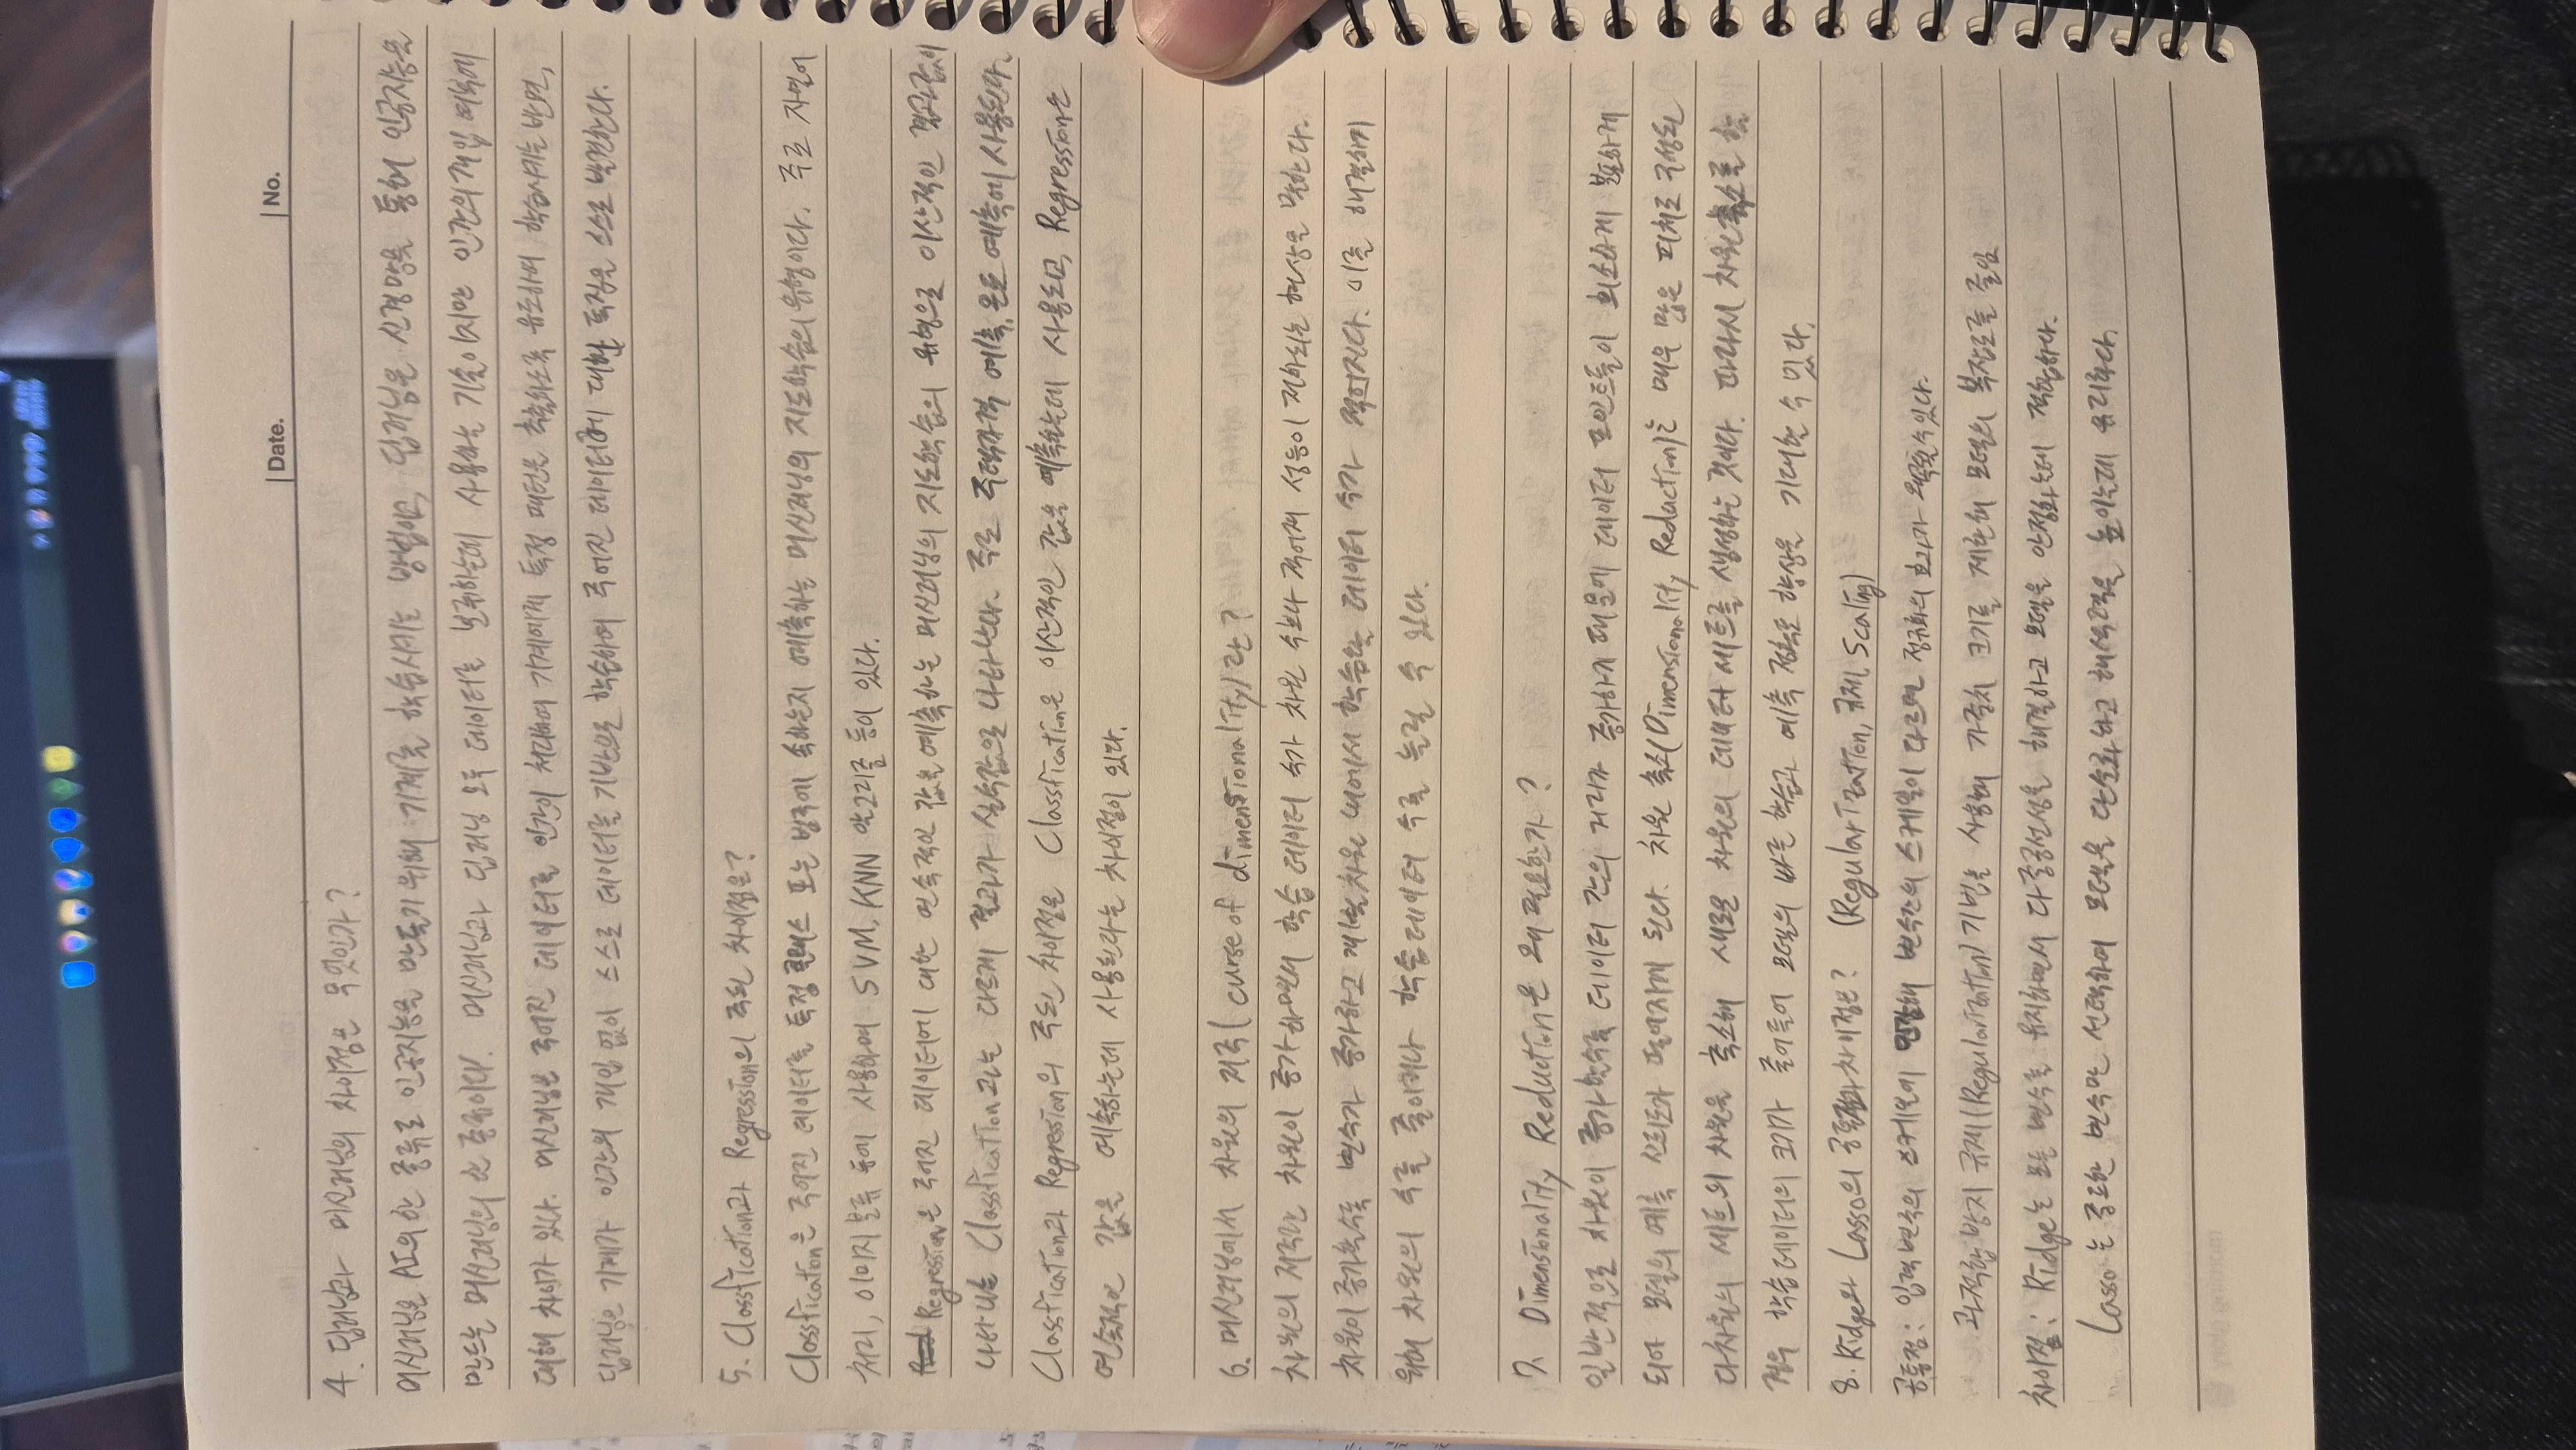 Date. No.
4. 딥러닝과 머신러닝의 차이점은 무엇인가?
머신러닝은 AI의 한 종류로 인공지능을 만들기 위해 기계를 학습시키는 방법이고, 딥러닝은 신경망을 통해 인공지능을
만드는 머신러닝의 한 종류이다. 머신러닝과 딥러닝 모두 데이터를 분류하는데 사용하는 기술이지만 인간의 개입 여부에
대해 차이가 있다. 머신러닝은 주어진 데이터를 인간이 처리하여 기계에게 특정 패턴을 추출하도록 유도하여 학습시키는 반면,
딥러닝은 기계가 인간의 개입 없이 스스로 데이터를 기반으로 학습하여 주어진 데이터에 대한 특징을 스스로 발견한다.
5. Classfication과 Regression의 주된 차이점은?
Classfication은 주어진 데이터를 특정 클래스 또는 범주에 속하는지 예측하는 머신러닝의 지도학습의 유형이다. 주로 자연어
처리, 이미지 분류 등에 사용하며 SVM, KNN 알고리즘 등이 있다.
Regression은 주어진 데이터에 대한 연속적인 값을 예측하는 머신러닝의 지도학습의 유형으로 이산적인 결과값이
나타나는 Classfication과는 다르게 결과가 실수값으로 나타난다. 주로 주택가격 예측, 온도 예측에 사용된다.
Classfication과 Regression의 주된 차이점은 Classfication은 이산적인 값을 예측하는데 사용되고, Regression은
연속적인 값을 예측하는데 사용된다라는 차이점이 있다.
6. 머신러닝에서 차원의 저주(curse of dimensionality)란?
차원의 저주란 차원이 증가하면서 학습 데이터 수가 차원 수보다 적어져 성능이 저하되는 현상을 말한다.
차원이 증가할수록 변수가 증가하고 개별 차원 내에서 학습할 데이터 수가 적어진다. 이를 해결하기
위해 차원의 수를 줄이거나 학습데이터 수를 늘릴 수 있다.
7. Dimensionality Reduction은 왜 필요한가?
일반적으로 차원이 증가할수록 데이터 간의 거리가 증가하기 때문에 데이터 포인트들이 희소하게 분포하게
되어 모델의 예측 신뢰도가 떨어지게 된다. 차원 축소(Dimensionality Reduction)는 매우 많은 피처로 구성된
다차원의 세트의 차원을 축소해 새로운 차원의 데이터 세트를 생성하는 것이다. 따라서 차원축소를 할
경우 학습데이터의 크기가 줄어들어 모델의 빠른 학습과 예측 정확도 향상을 기대할 수 있다.
8. Ridge와 Lasso의 공통점과 차이점은? (Regularization, 규제, Scaling)
공통점: 입력 변수의 스케일에 민감해 변수간의 스케일이 다르면 정규화의 효과가 왜곡될 수 있다.
과적합 방지 규제(Regularization) 기법을 사용해 가중치 크기를 제한해 모델의 복잡도를 줄임
차이점: Ridge는 모든 변수를 유지하면서 다중공선성을 해결하고 모델을 안정화하는데 적합하다.
Lasso는 중요한 변수만 선택하여 모델을 단순화하고 해석력을 높이는데 유리하다.